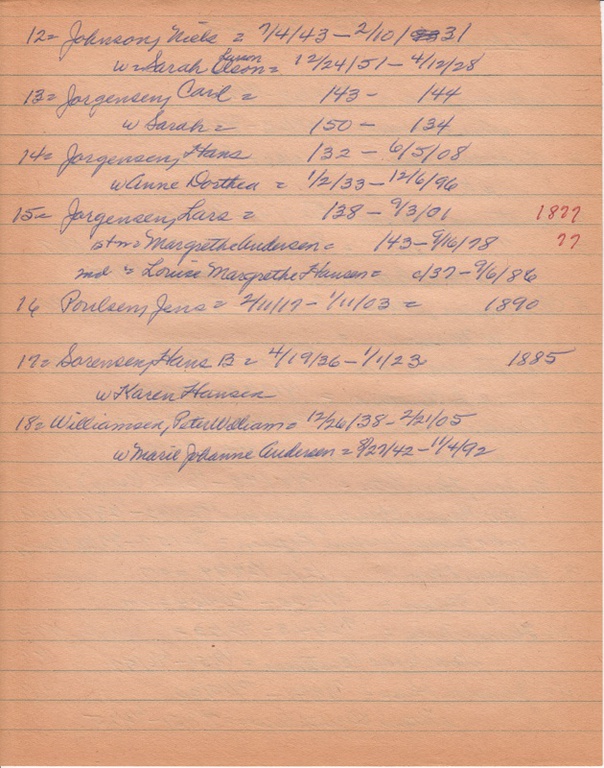 12= Johnson, Niels = 7/4/43 – 2/10/31
Larson
w = Sarah Olson = 12/24/51 – 4/12/28
13= Jorgensen, Carl = 143 – 144
w Sarah = 150 – 134
14= Jorgensen, Hans 132 – 6/5/08
w Anne Dorthea = 1/2/33 – 12/6/96
15= Jorgensen, Lars = 138 – 9/3/01 1877
1st m = Margrethe Andersen = 143 – 9/16/78 77
md = Louise Margrethe Hansen = c/37 – 9/6/86
16 Poulsen, Jens = 2/11/17 – 1/11/03 = 1890
17= Sorensen, Hans B = 4/19/36 – 1/1/23 1885
w Karen Hansen
18= Williamsen, Peter William = 12/26/38 – 2/21/05
w Marie Johanne Andersen = 8/27/42 – 11/4/92